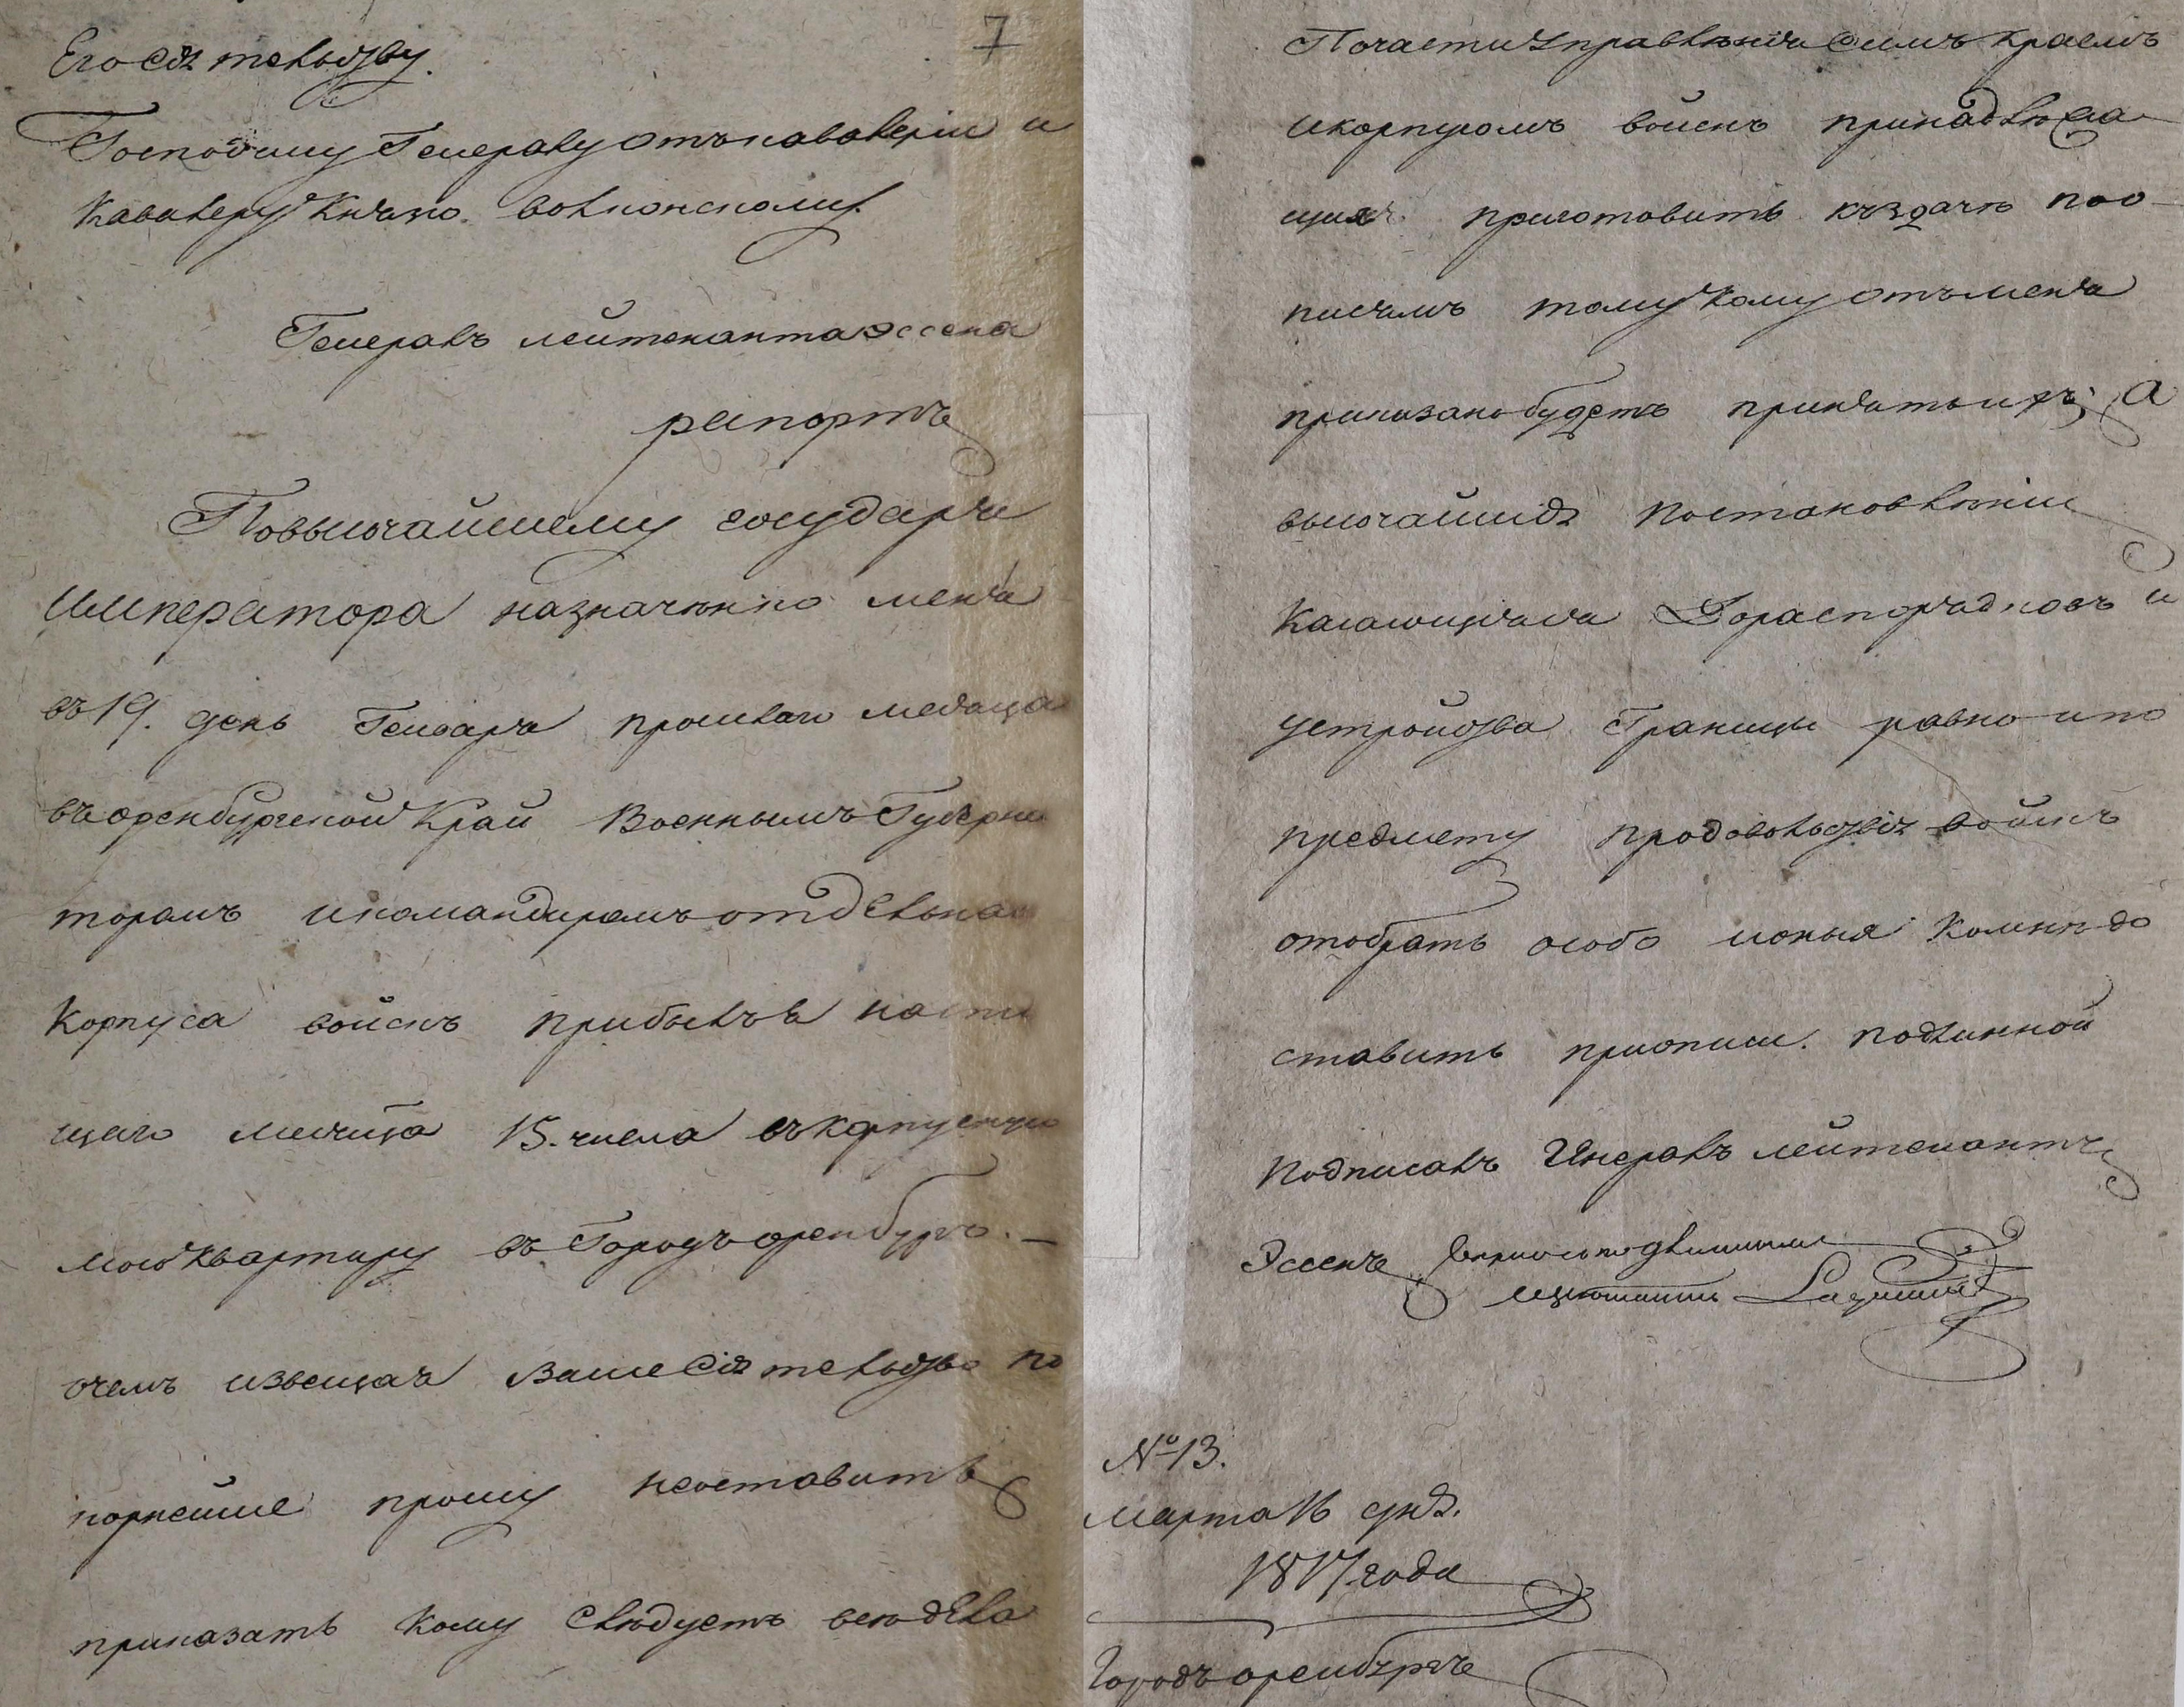 7
Его Сіятельству
Господину Генералу отъ кавалеріи и
Кавалеру Князю Волконскому.
Генералъ лейтенанта Эссена
рапортъ
По высочайшему государя
Императора назначенію меня
въ 19. день Генваря прошлаго месяца
въ оренбургской Край Военнымъ Губерна
торамъ и командиромъ отдельнаго
Корпуса войскъ прибылъ я насто
щаго месяца 15. числа въ корпусную
мою квартиру въ Городъ оренбургъ. —
о чемъ извещая Ваше Сіятельство по
корнейше прошу неоставить
приказать кому следуетъ все дела
По части управленія Симъ Краемъ
и корпусомъ войскъ принадлежа
щихъ приготовить къ здаче по о
писямъ тому кому отъ меня
приказано будетъ принять ихъ; а
высочайшія постановленіи
Касающіяся До распорядковъ и
устройства Границы равно и по
предмету продовольствія войскъ
отобрать особо и оныя Комне до
ставить при описи. подлинной
Подписалъ Генералъ лейтенантъ
Эссенъ Верно съ подлиннымъ
адъютантъ
№ 13.
Марта 16 дня.
1817. года
Городъ оренбургъ